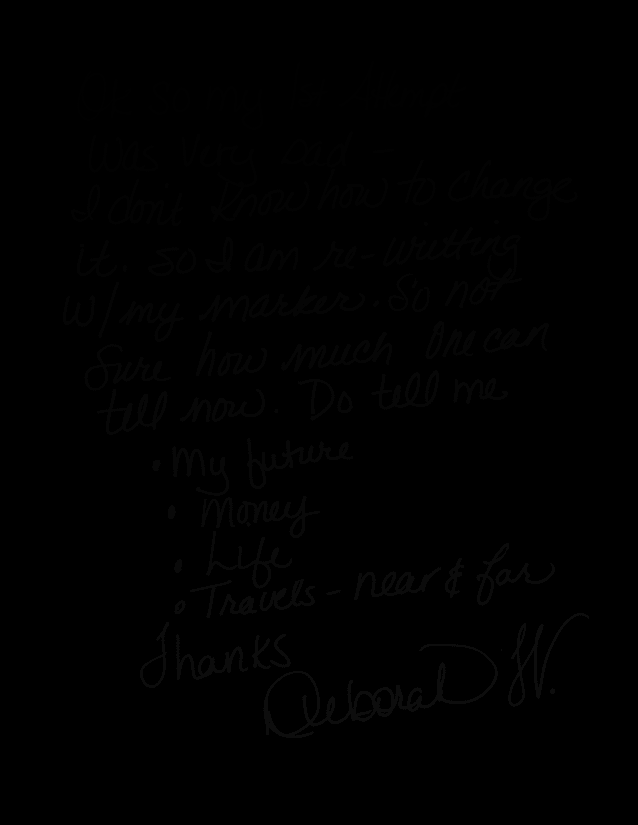 was very sad -
I don't know how to change
it. so I am re-writting
w/ my marker. So not
Sure how much One can
tell now. Do tell me
• My future
• Money
• Life
• Travels - near & far
Thanks
Deborah W.